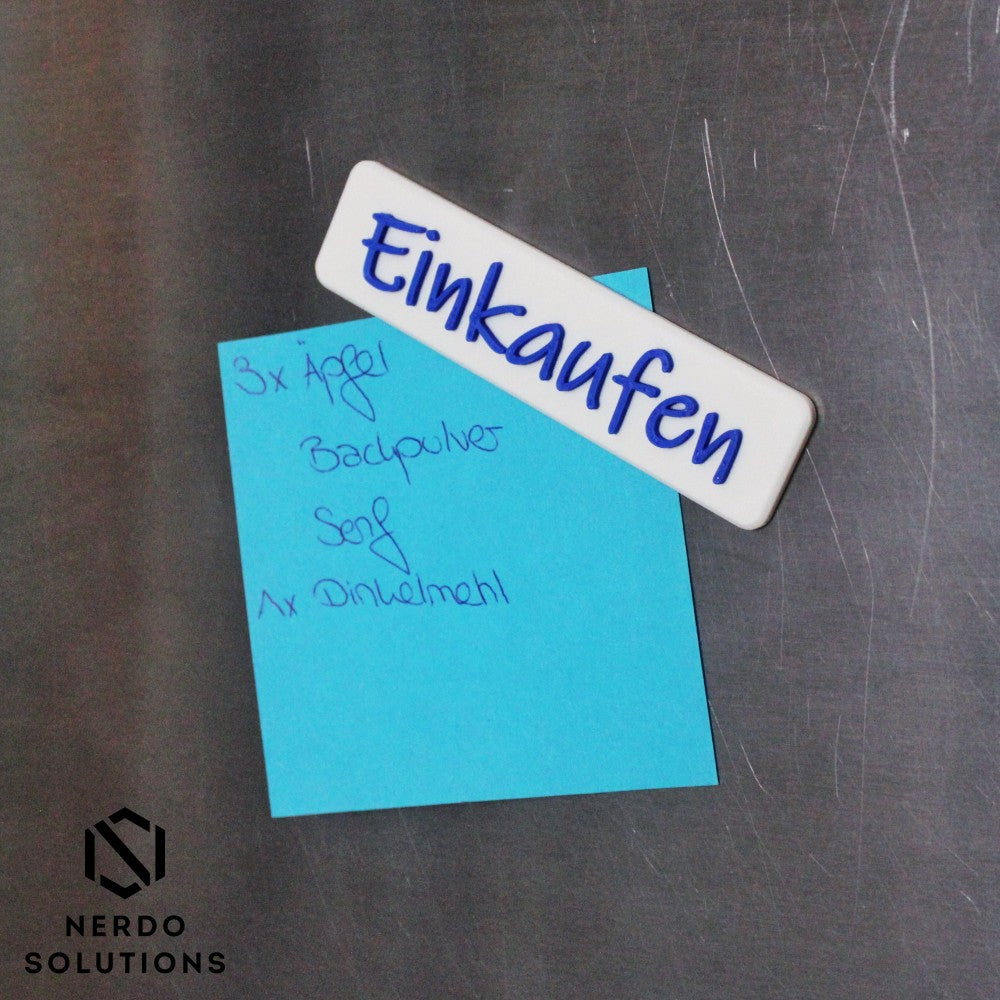 Einkaufen
3x Äpfel
Backpulver
Senf
1x Dinkelmehl
NERDO
SOLUTIONS